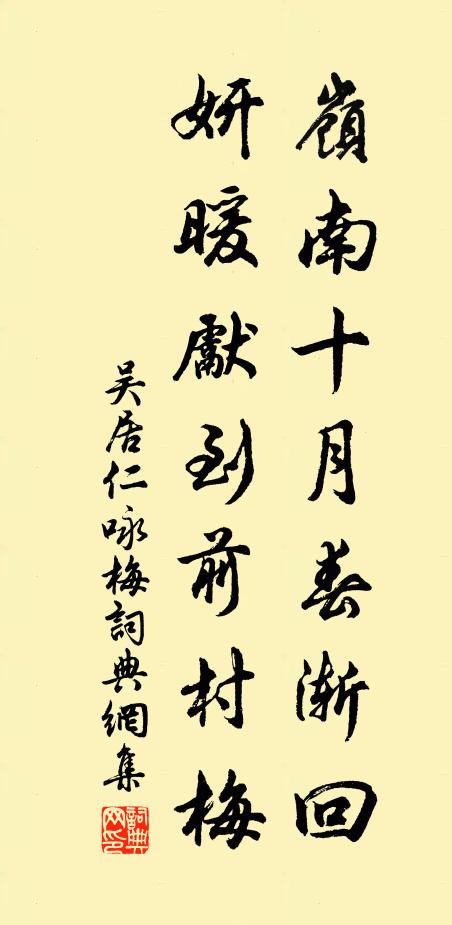 嶺南十月春漸回
妍暖獻到前村梅
吴居仁咏梅詞典網集
詞典網印